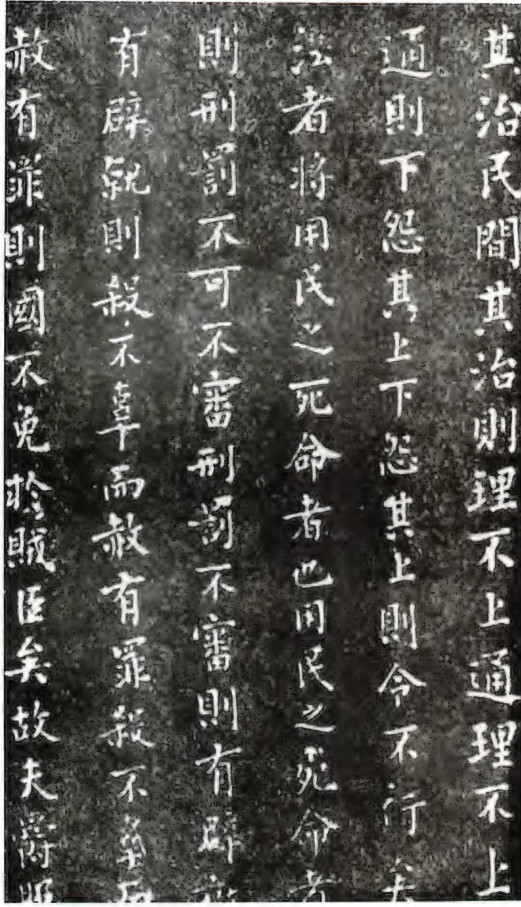 其治民間其治則理不上通理不上
通則下怨其上下怨其上則令不行矣
法者將用民之死命者也用民之死命者
則刑罰不可不審刑罰不審則有辟就
有辟就則殺不辜而赦有罪殺不辜而
赦有罪則國不免於賊臣矣故夫爵服